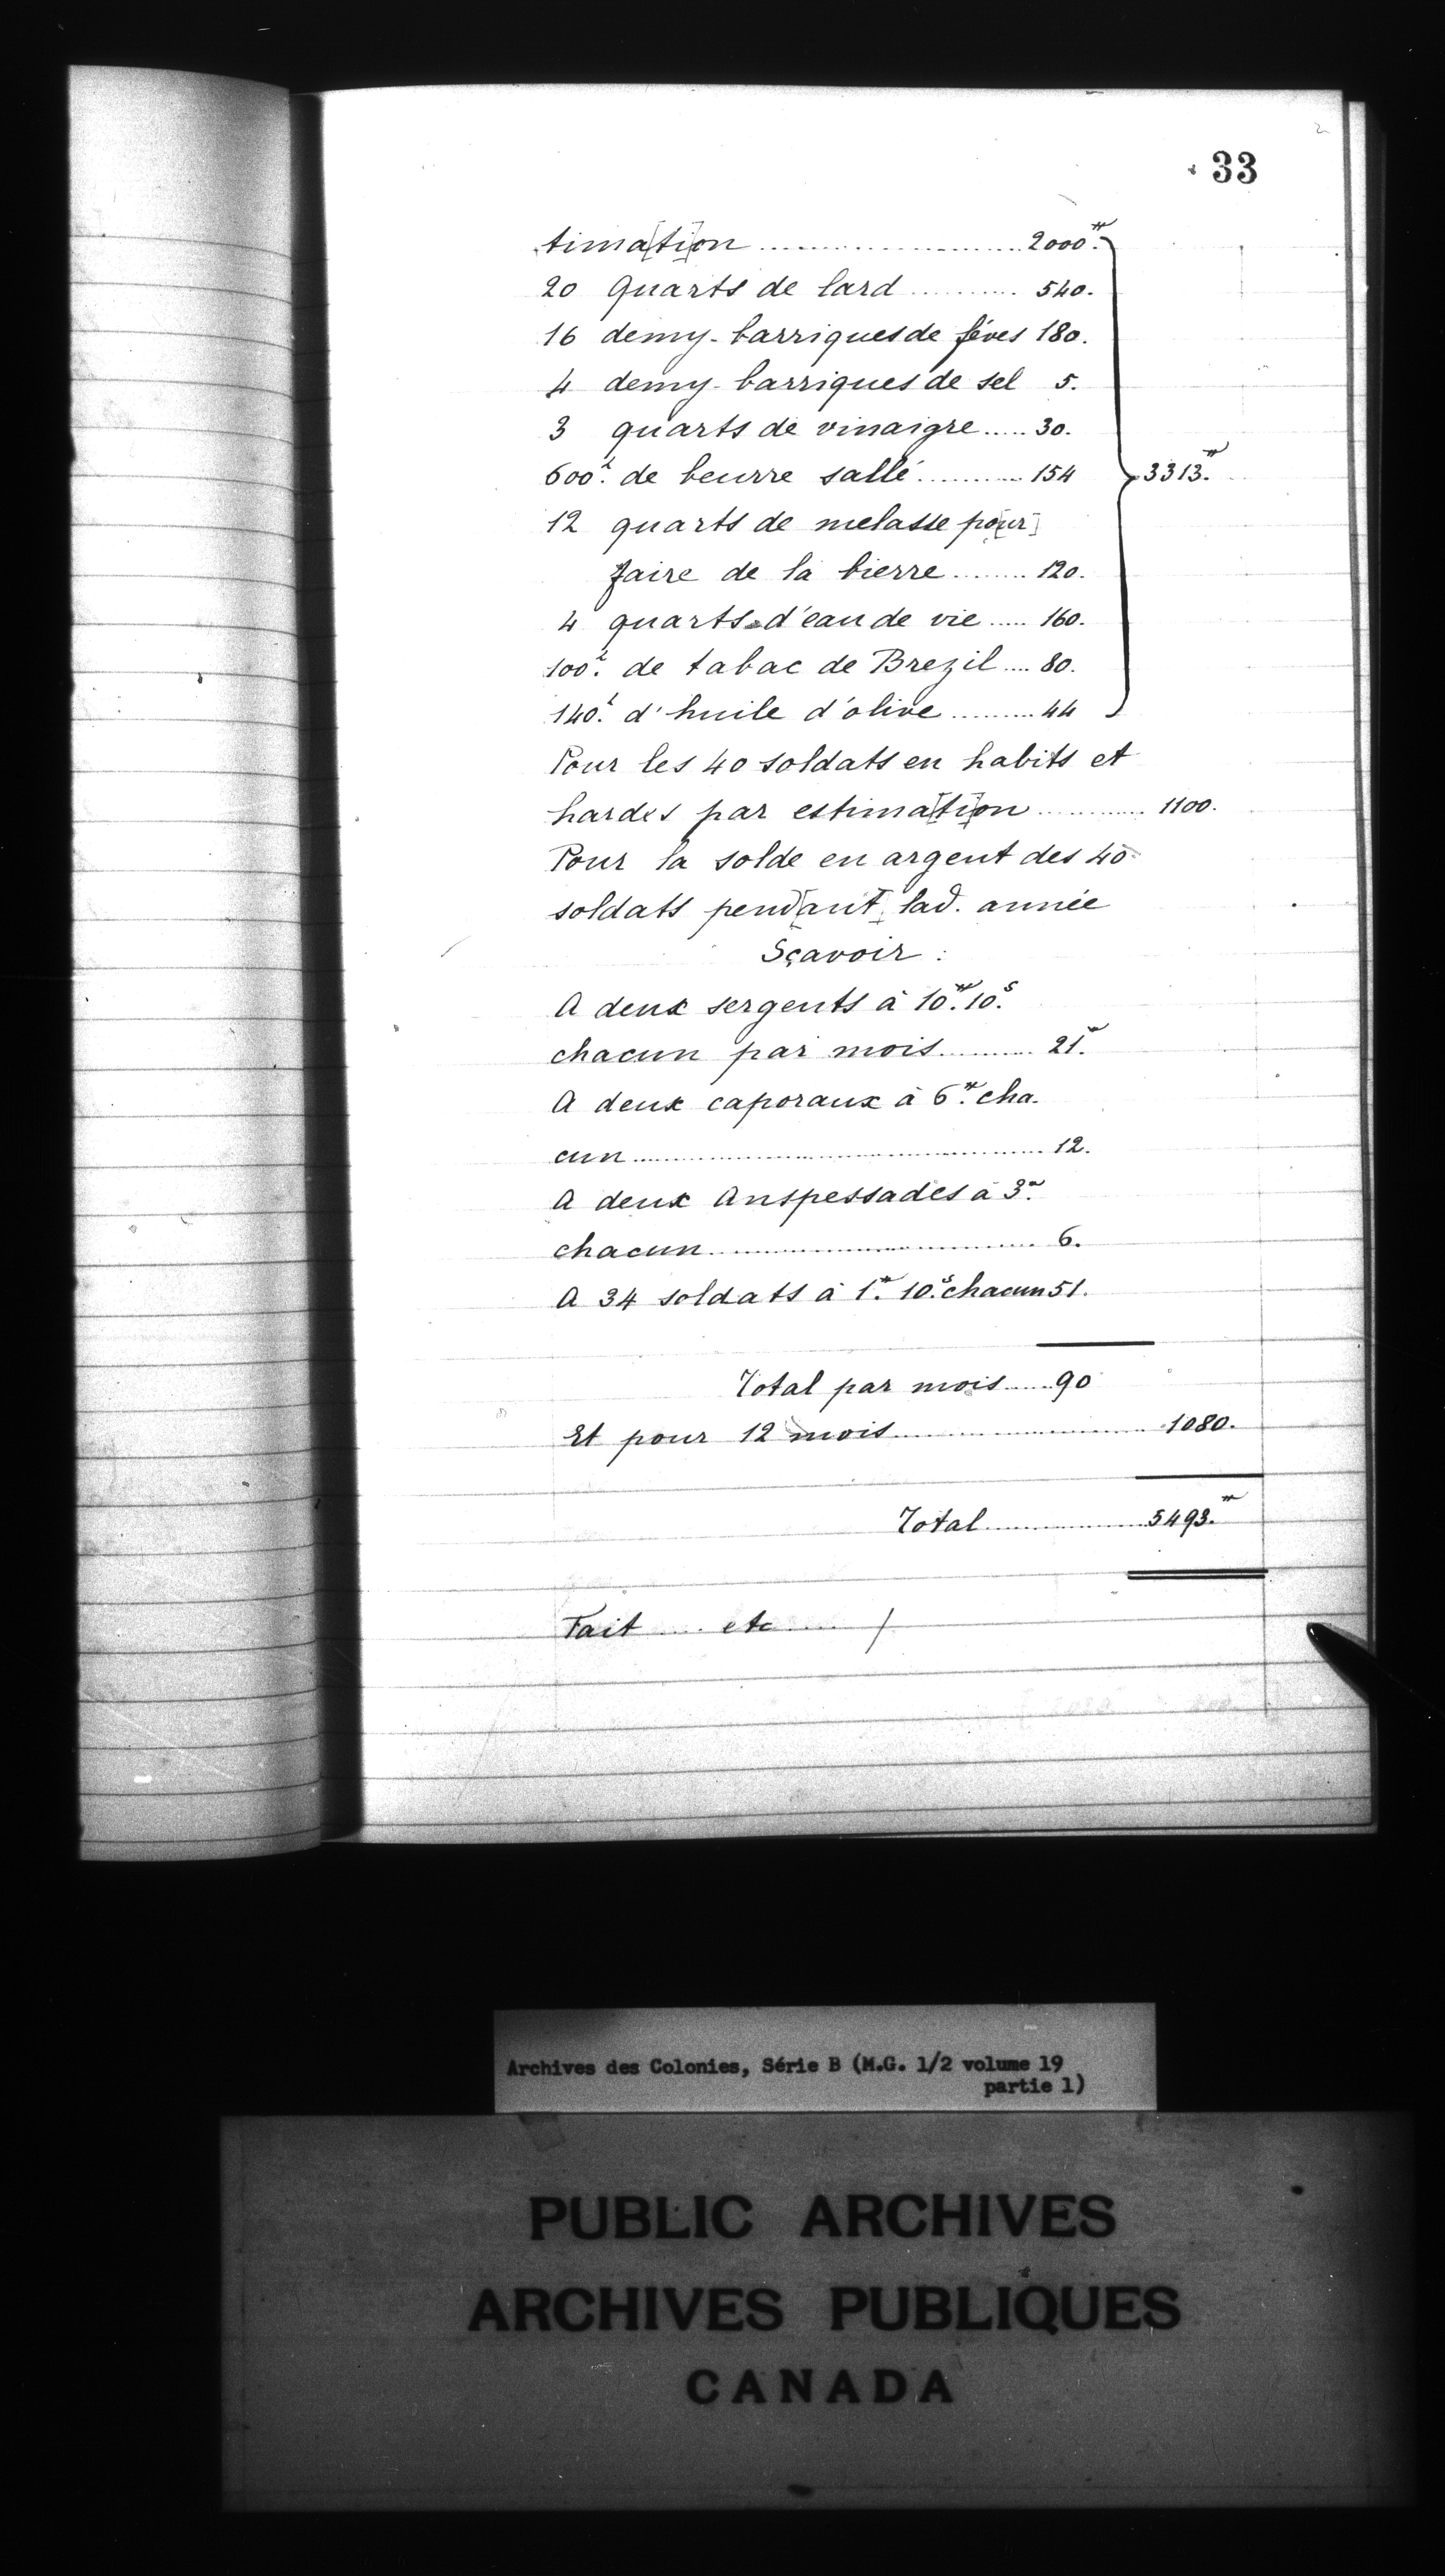 33
tima[ti]on ........................ 2000.₶
20 Quarts de lard ........... 540.
16 demy-barriques de féves 180.
4 demy-barriques de sel 5.
3 quarts de vinaigre ..... 30.
600.l de beurre sallé ........... 154
3313.₶
12 quarts de melasse po[ur]
faire de la bierre ........ 120.
4 quarts d'eau de vie ..... 160.
100.l de tabac de Brezil .... 80.
140.l d'huile d'olive .......... 44
Pour les 40 soldats en habits et
hardes par estima[ti]on ............ 1100.
Pour la solde en argent des 40
soldats pend[ant] lad. année
Sçavoir :
A deux sergents à 10.₶ 10.s
chacun par mois .......... 21.₶
A deux caporaux à 6.₶ cha-
cun ........................................ 12.
A deux Anspessades à 3.₶
chacun ................................ 6.
A 34 soldats à 1.₶ 10.s chacun 51.
Total par mois ..... 90
Et pour 12 mois ........................ 1080.
Total ................ 5493.₶
Fait .... etc ..... /
Archives des Colonies, Série B (M.G. 1/2 volume 19
partie 1)
PUBLIC ARCHIVES
ARCHIVES PUBLIQUES
CANADA